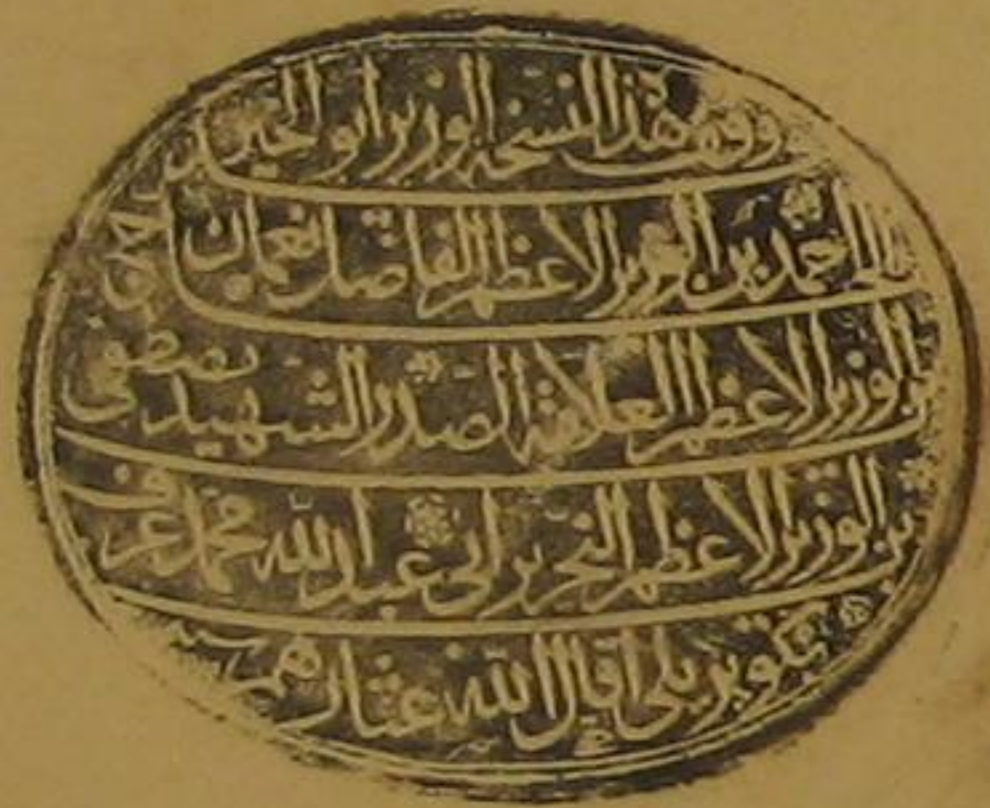 وقف هذا النسخه الوزير ابو الخير
الحاج احمد بن الوزير الاعظم الفاضل نعمان
بن الوزير الاعظم العلامة الصدر الشهيد مصطفى
بن الوزير الاعظم النحرير ابي عبد الله محمد عرف
بكوبريلي اقال الله عثارهم